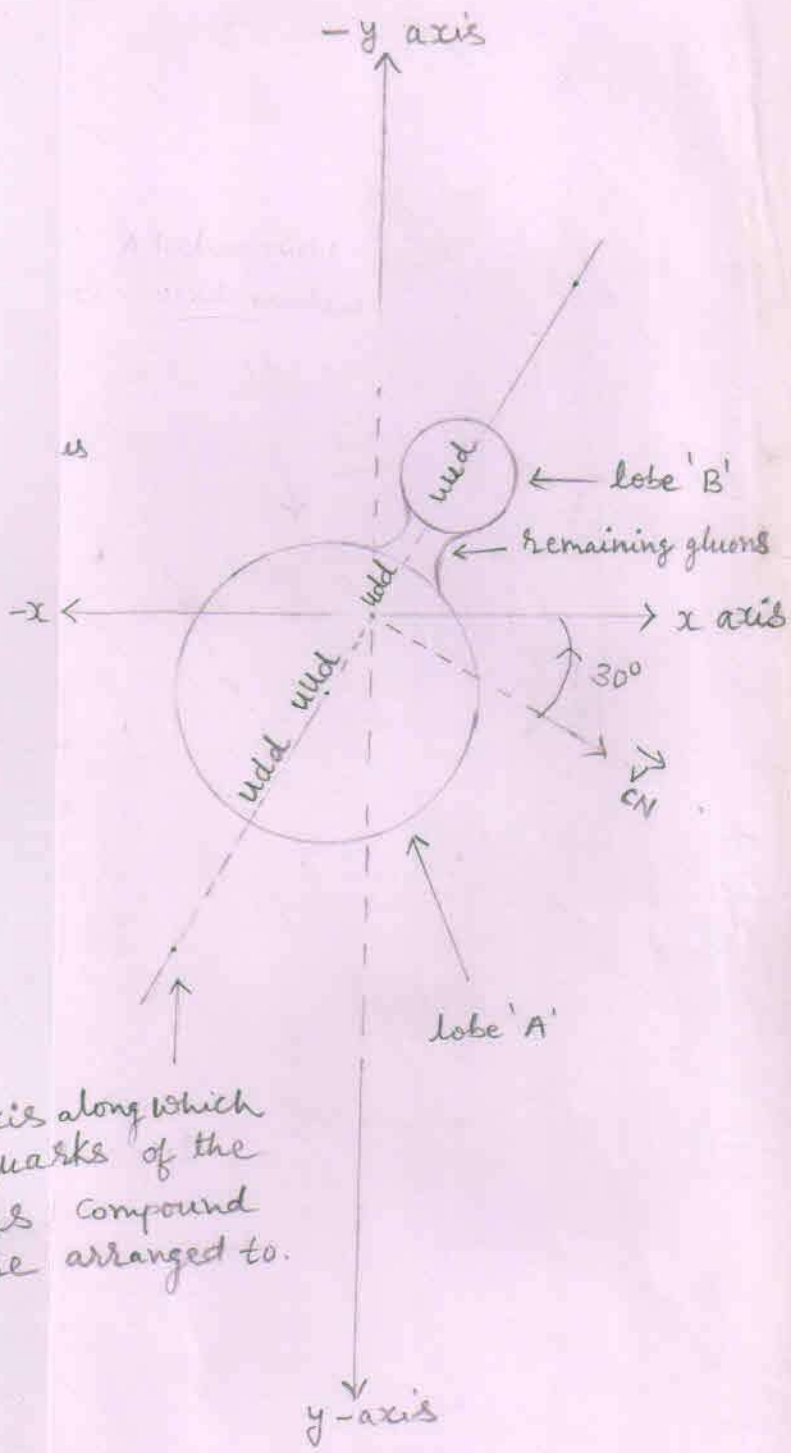 -y axis
us
uud
lobe 'B'
remaining gluons
udd
-x
x axis
30°
uud
udd
lobe 'A'
is along which
uarks of the
s compound
e arranged to.
y-axis